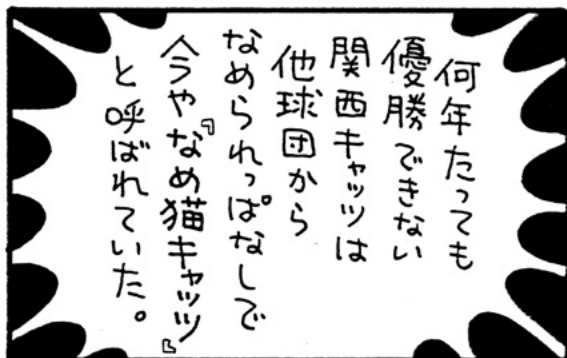 何年たっても
優勝できない
関西キャッツは
他球団から
なめられっぱなしで
今や『なめ猫キャッツ』
と呼ばれていた。